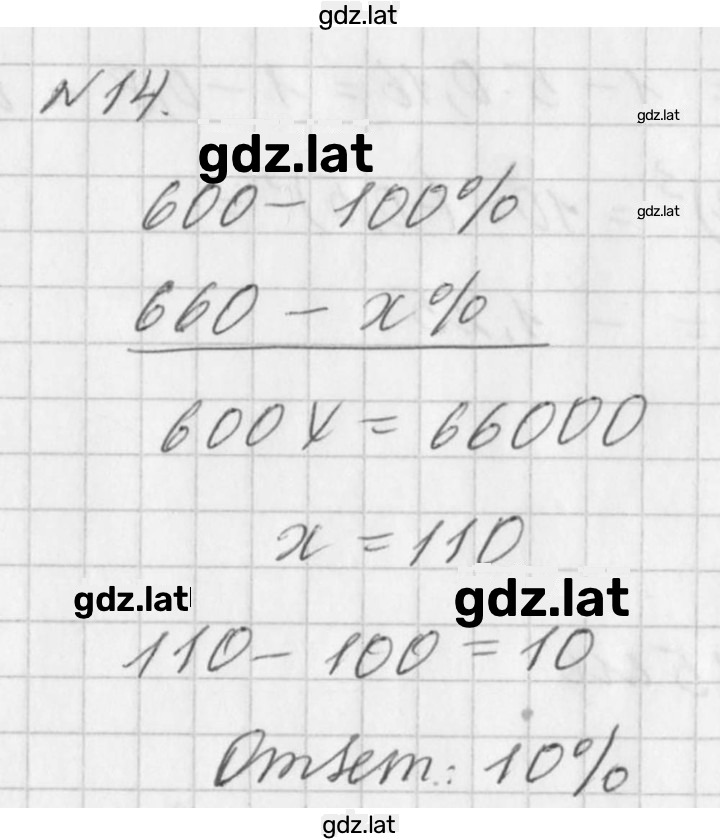 gdz.lat
№14.
gdz.lat
gdz.lat
600 – 100%
gdz.lat
660 – x%
600x = 66000
x = 110
gdz.lat
gdz.lat
110 – 100 = 10
Ответ: 10%
gdz.lat